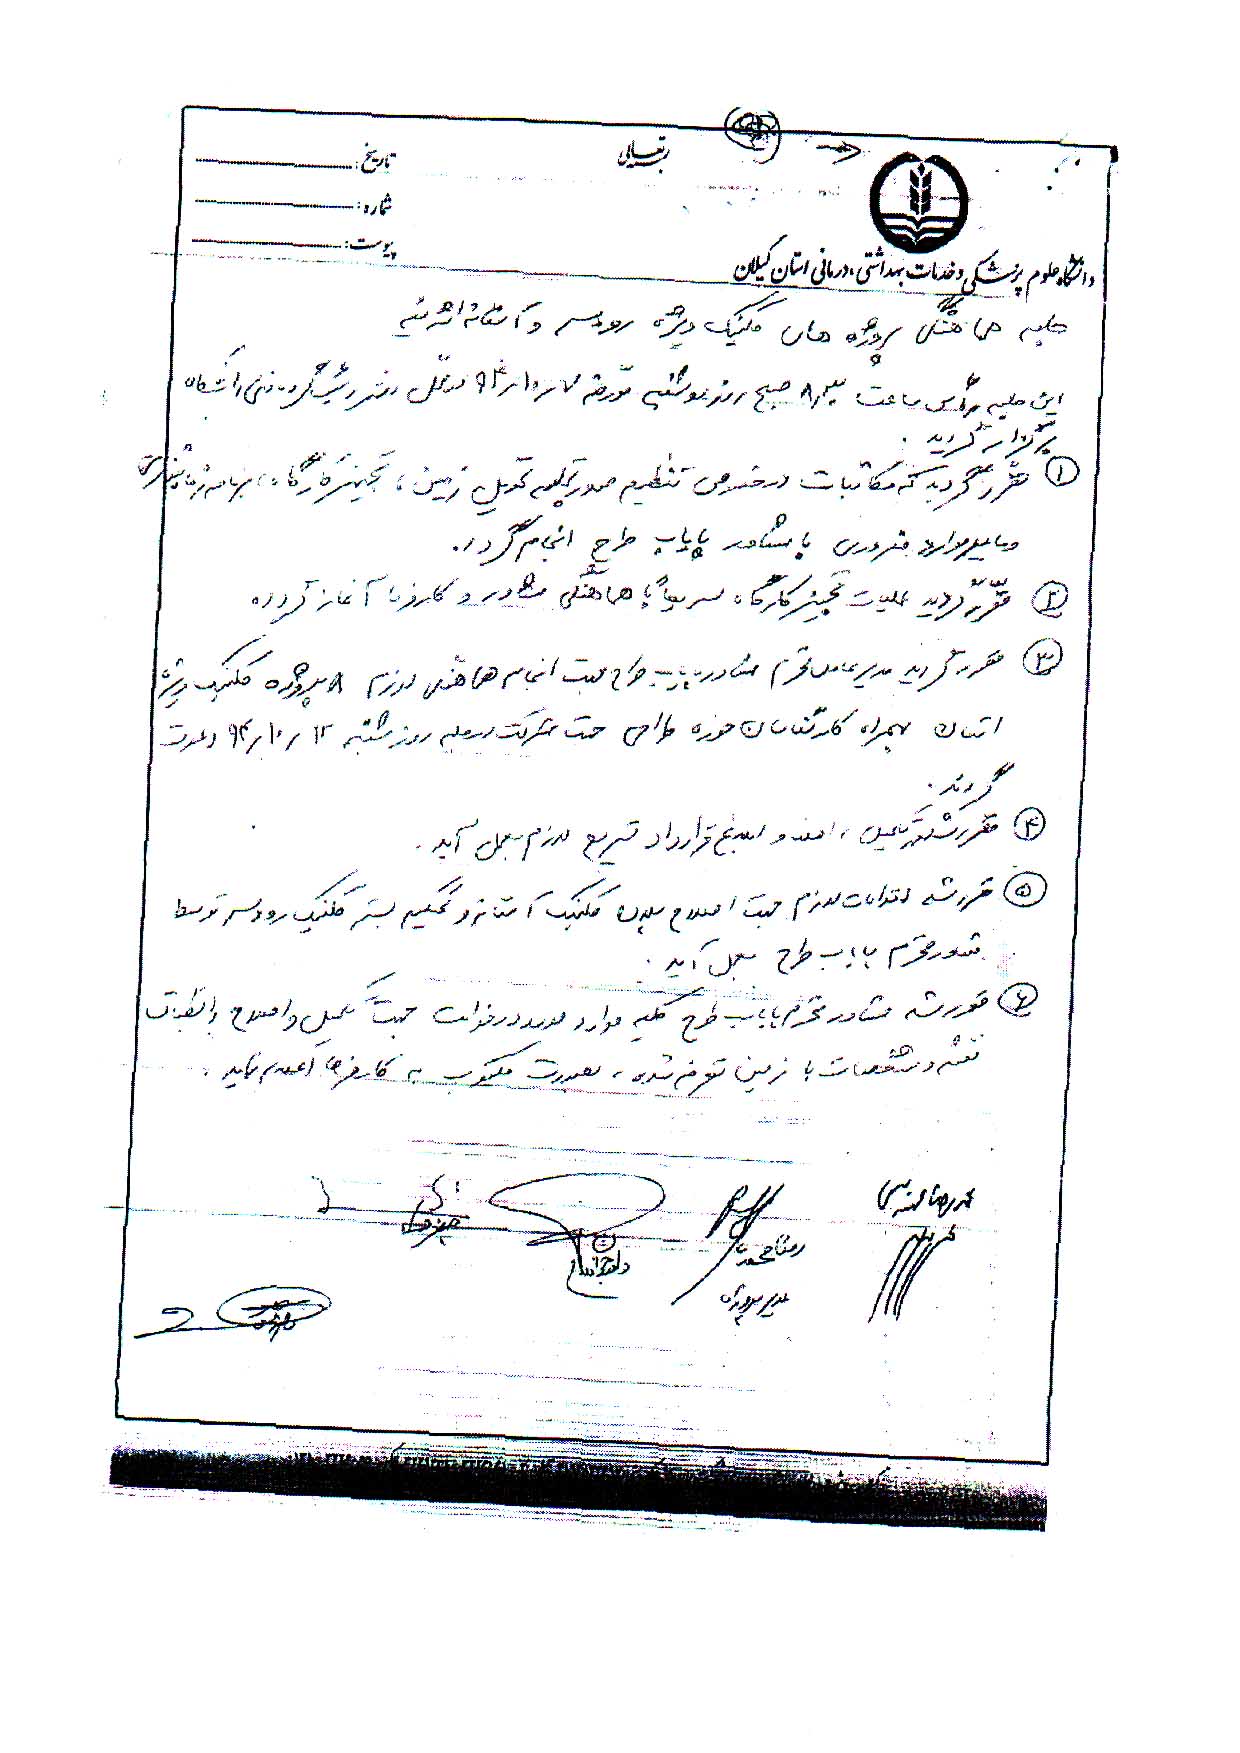 بسمه تعالی
تاریخ:
شماره:
پیوست:
دانشگاه علوم پزشکی و خدمات بهداشتی، درمانی استان گیلان
جلسه هماهنگی پروژه های کلینیک ویژه رودسر و آستانه اشرفیه
این جلسه رأس ساعت ۸/۳۰ صبح روز دوشنبه مورخه ۹۴/۱۰/۷ در محل دفتر فنی دانشگاه
برگزار گردید.
۱ مقرر گردید که مکاتبات در خصوص تنظیم صورتجلسه تحویل زمین، تجهیز کارگاه، برنامه
و سایر موارد ضروری با مشاور پایاب طرح انجام گردد.
۲ مقرر گردید عملیات تجهیز کارگاه سریعاً با هماهنگی مشاور و کارفرما آغاز گردد
۳ مقرر گردید مدیر عامل محترم مشاور پایاب طرح جهت انجام هماهنگی لازم ۸ پروژه کلینیک ویژه
استان بهمراه کارشناسان حوزه طراحی جهت شرکت در جلسه روز شنبه ۹۴/۱۰/۱۲ دعوت
گردند.
۴ مقرر شد تکمیل، امضاء و ابلاغ قرارداد تسریع لازم بعمل آید.
۵ مقرر شد اقدامات لازم جهت اصلاح پلان کلینیک آستانه و تحکیم بستر کلینیک رودسر توسط
مشاور محترم پایاب طرح بعمل آید.
۶ مقرر شد مشاور محترم پایاب طرح کلیه موارد مورد درخواست جهت تکمیل و اصلاح و انطباق
نقشه و مشخصات با زمین معرفی شده، بصورت مکتوب به کارفرما اعلام نماید.
محمدرضا
رضا محمدی
مدیر پروژه